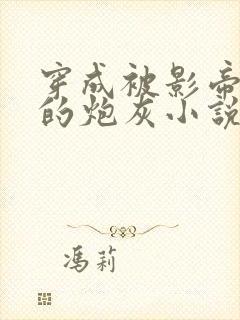 穿成被影帝
的炮灰小説
馮莉